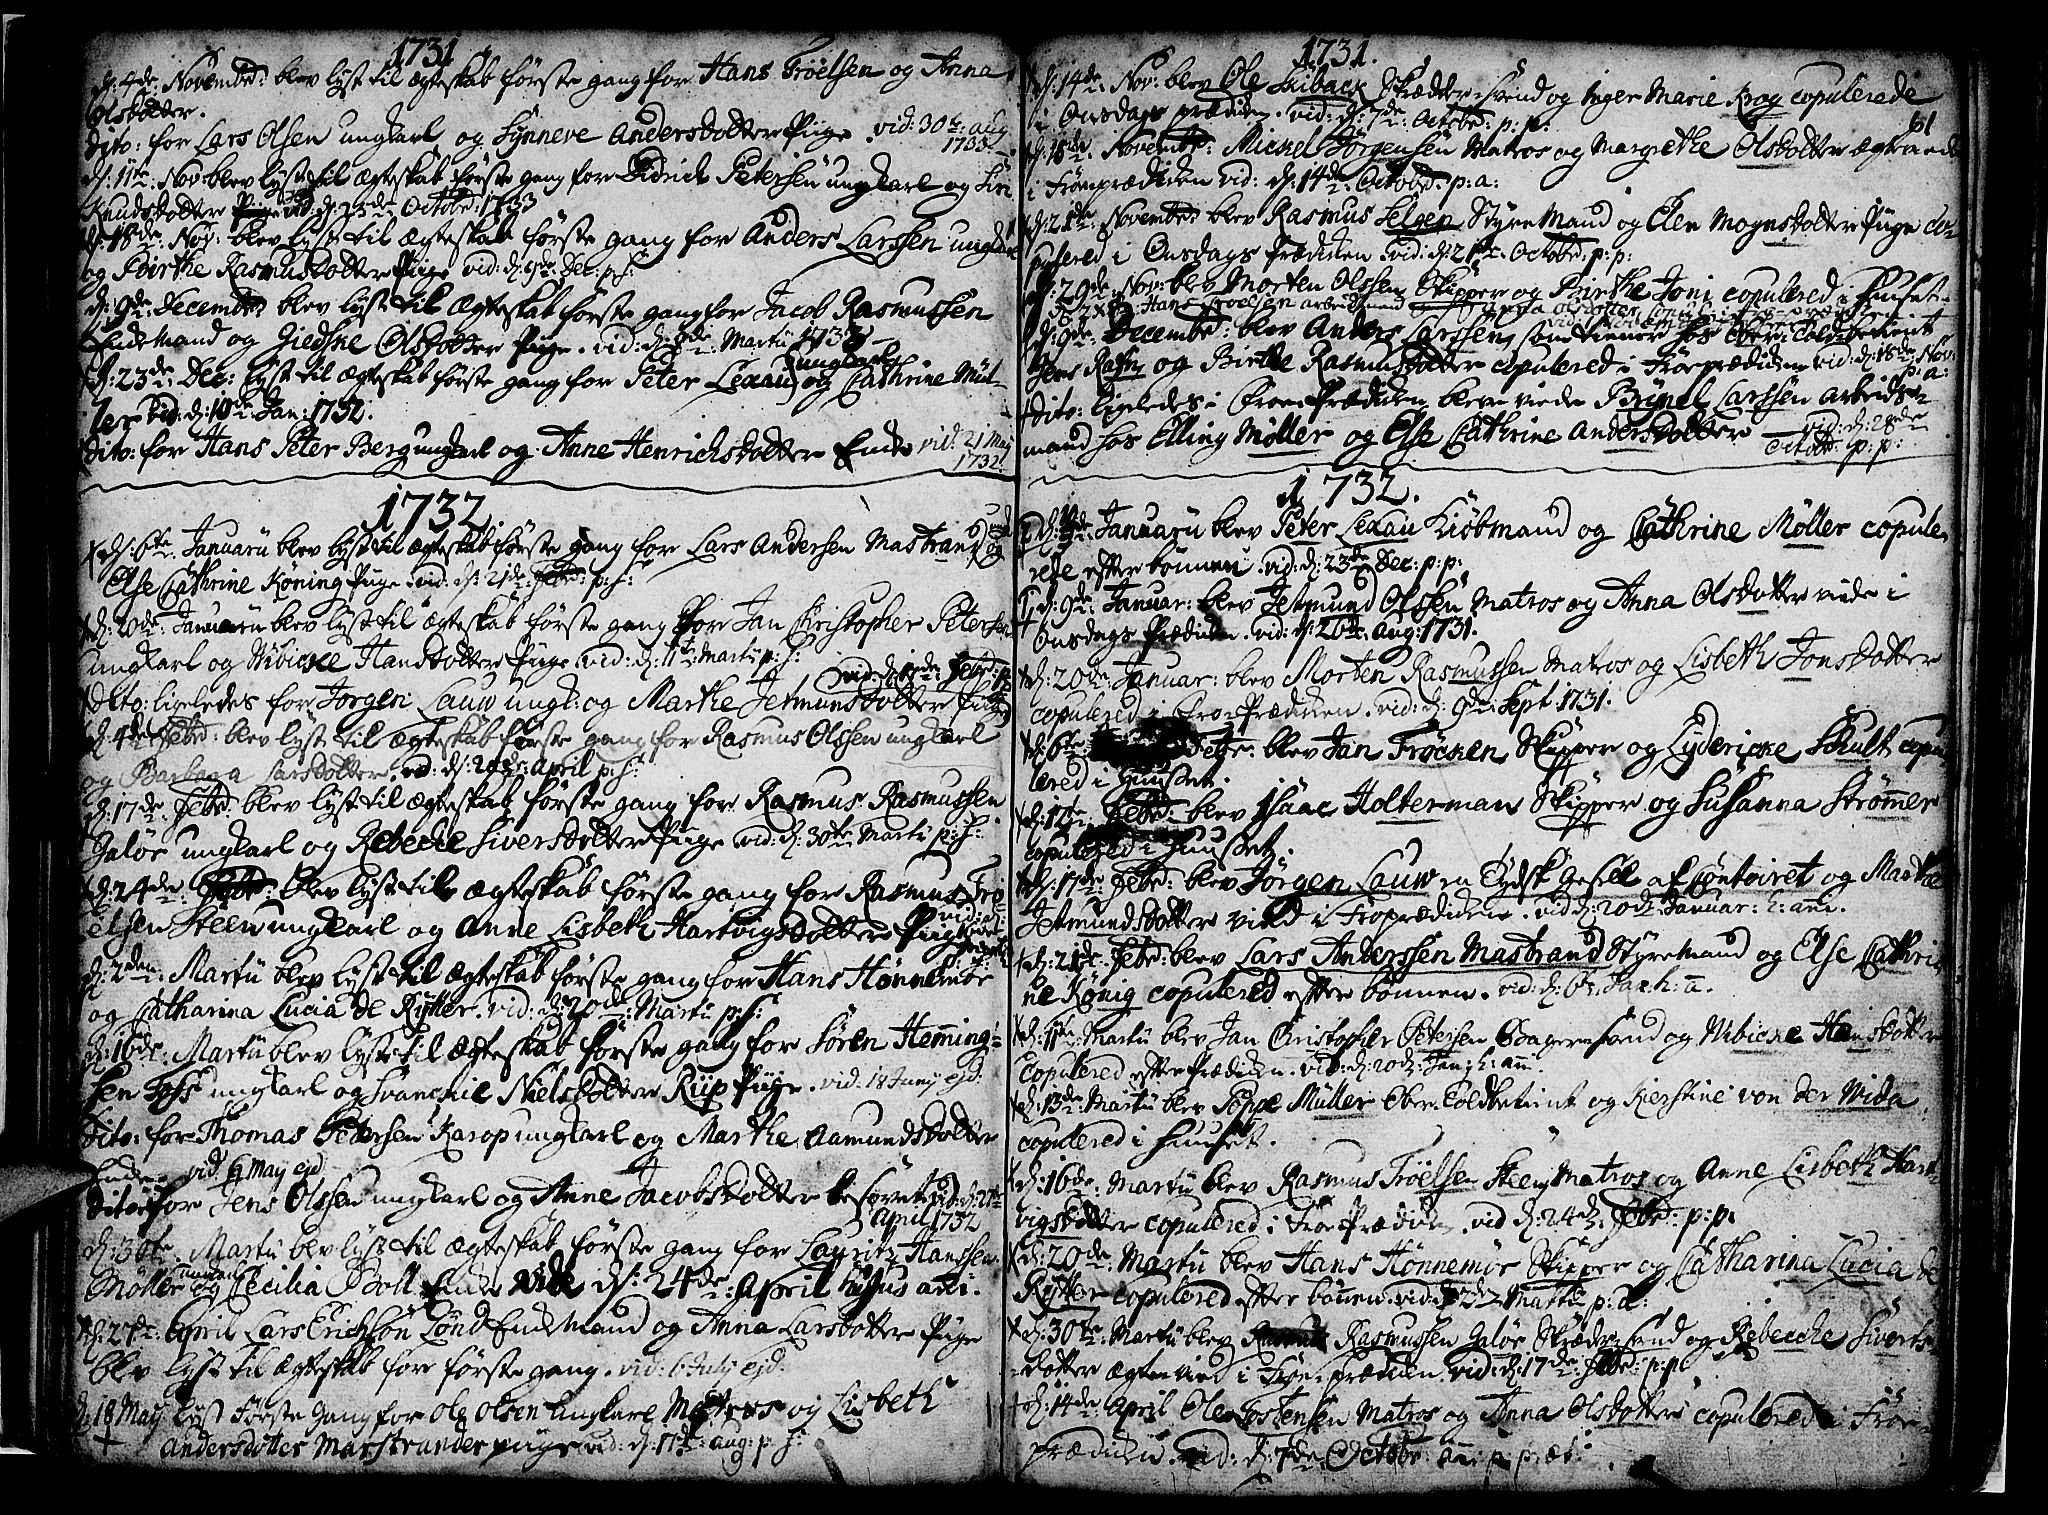 1731
d: 4de: Novembr: blev lyst til ægteskab første gang for Hans Tröelsen og Anna
Olsdotter.
dito: for Lars Olsen ungkarl og Synneve Andersdotter Piige. vid: 30te: aug
1733.
d: 11te: Nov: blev lyst til ægteskab første gang for Didrich Petersen ungkarl og Siri
Knudsdotter Piige vid: d: 23de October: 1733
d: 18de: Nov: blev lyst til ægteskab første gang for Anders Larssen ungkarl
og Birthe Rasmusdotter Piige vid: d: 9de: Dec: p: f:
d: 9de: Decembr: blev lyst til Ægteskab første gang for Jacob Rasmussen
Enkemand og Giedske Olsdotter Piige. vid: d: Martii 1732
d: 23de: Dec: lyst til ægteskab første gang for Peter Lexau ungkarl og Cathrine Mül-
ler vid: d: 10de: Jan: 1732.
dito: for Hans Peter Berg ungkarl og Anne Henrichsdotter Enke vid: 21 Maj
1732.
1732
d: 6te: Januarii blev lyst til ægteskab første gang for Lars Andersen Mastrand og
Else Cathrine Köning Piige. vid: d: 21de: Febr: p: f:
d: 20de: Januarii blev lyst til ægteskab første gang for Jan Christopher Petersen
ungkarl og Wibicke Hansdotter Piige vid: d: 11te: Martii p: f:
dito: ligeledes for Jörgen Lauw ungk: og Marthe Jetmundsdotter Piige vid: d: 17de: Febr: p:
d: 4de Febr: blev lyst til ægteskab første gang for Rasmus Olssen ungkarl
og Barbara Larsdotter. vid: d: 20de: April p: f:
d: 17de Febr: blev lyst til ægteskab første gang for Rasmus Rasmussen
Galöe ungkarl og Rebecke Siversdotter Piige vid: d: 30te Martii p: f:
d: 24de: Febr: blev lyst til ægteskab første gang for Rasmus Trö-
elsen Steen ungkarl og Anne Lisbeth Hartvigsdotter Piige
d: 2den: Martii blev lyst til ægteskab første gang for Hans Hönnemör
og Catharina Lucia de Rytter. vid: d: 20de: Martii p: f:
d: 16de: Martii blev lyst til ægteskab første gang for Sören Heming-
sen ungkarl og Svanckie Nielsdotter Riip Piige. vid: 18 Junij ejd:
Dito: for Thomas Petersen Karop ungkarl og Marthe Aamundsdotter
Enke. vid: May ejd
Dito: for Jens Olssen ungkarl og Anne Jacobsdotter besovet vid: d: 27de
April 1732
d: 30te. Martii blev lyst til ægteskab første gang for Lauritz Hanssen
Möller ungkarl og Cecilia Boll Enke vide d: 24de: April hujus anni.
d: 27de: April Lars Erichsön Lönd Enkemand og Anna Larsdotter Piige
blev lyst til Ægteskab for første gang. vid: 6 Julij ejd:
d: 18 Maij lyst Første Gang for Ole Olsen Ungkarl Matros og Lisbeth
Andersdotter Marstrander piige vid: d: 17de: aug: p: f:
1731.
61
d: 14de: Nov: blev Ole Skredder-svend og Inger Marie Krog copulerede
i Onsdags prædiken. vid: d: 7de: Octobr: p: p:
d: 18de: Novembr: Mickel Jörgensen Matros og Margrethe Olsdotter ægteviede
i Froeprædiken vid: d: 14de: Octobr: p: a:
d: 21de: Novembr: blev Rasmus Styremand og Elen Mognsdotter Piige co-
pulered i Onsdags Prædiken. vid: d: 21de: Octobr: p: p:
d: 29de: Nov: blev Morten Olssen Skipper og Birthe copulered i Huuset.
Hans Troelsen arbeidsmand
d: 9de: Decembr: blev Anders Larssen, som tiener hos Ober-Toldbetient
Jens og Birthe Rasmusdotter copulered i Froeprædiken vid: d: 18de: Nov:
p: a:
dito: ligeledes i Froe-Prædiken bleve viede Brynel Larssen arbeids-
mand hos Elling Möller og Else Cathrine Andersdotter vid: d: 28de
Octobr: p: p:
1732.
d: Januarii blev Peter Lexau Kiöbmand og Cathrine Möller copule-
rede efter bönnen. vid: d: 23de Dec: p: p:
d: 9de: Januar: blev Jetmund Olssen Matros og Anna Olsdotter viede i
Onsdags Prædiken. vid: d: 26de: Aug: 1731.
d: 20de: Januar: blev Morten Rasmussen Matros og Lisbeth Jonsdotter
copulered i Froe-Prædiken. vid: d: 9de: Sept: 1731.
d: 6te Febr: blev Jan Fröcken Skipper og Lydericke Schult copu-
lered i Huuset.
d: 17te: Febr: blev Isaac Holterman Skipper og Susanna Strömer
copulered i Huuset.
d: 17de: Febr: blev Jörgen Lauw en Tydsk Gesell af Contoiret og Marthe
Jetmundsdotter viede i Froprædiken. vid: d: 20de: Januar: h: ani.
d: 21de: Febr: blev Lars Anderssen Mastrand Styremand og Else Cathri-
ne König copulered efter bönnen. vid: d: 6te: Jan: h: a.
d: 11te: Martii blev Jan Christopher Petersen Bager-svend og Wibicke Hansdotter
copulered efter Prædiken. vid: d: 20de: Jan: h: ani.
d: 13de: Martii blev Seppe Müller Ober-Toldbetient og Kierstine von der Wida
copulered i Huuset.
d: 16de: Martii blev Rasmus Tröelsen Steen, Matros og Anne Lisbeth Hart-
vigsdotter copulered i Froe-Prædiken. vid d: 24de: Febr: p: p:
d: 20de: Martii blev Hans Hönnemör Skipper og Catharina Lucia de
Rytter copulered efter bönnen. vid: d: 2de Martii p: a:
d: 30te: Martii blev Rasmus Rasmussen Galöe Skrædersvend og Rebecche Siverts-
dotter ægteviede i Froe-Prædiken. vid: d: 17de: Febr: p: p.
d: 14de: April Ole Tostensen Matros og Anna Olsdotter copulered i Froe-
prædiken. vid: d: 7de Octobr: ani: p: præt: